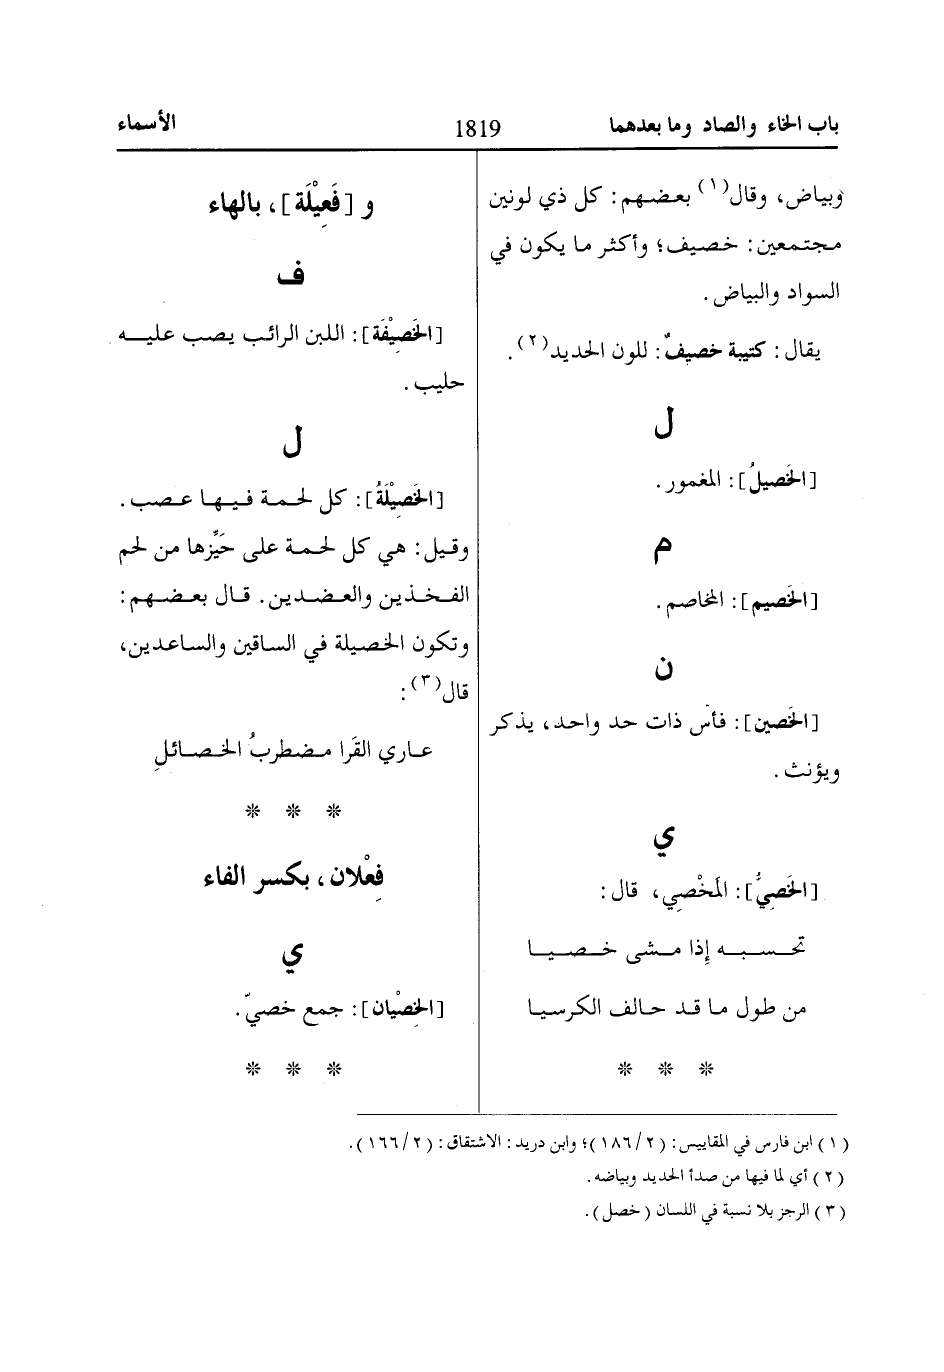 باب الخاء والصاد وما بعدهما
1819
الأسماء
وبياض، وقال(١) بعضهم: كل ذي لونين
مجتمعين: خصيف؛ وأكثر ما يكون في
السواد والبياض.
يقال: كتيبة خصيفٌ: للون الحديد(٢).
ل
[الخَصيلُ]: المغمور.
م
[الخَصيم]: المخاصم.
ن
[الخَصين]: فأس ذات حد واحد، يذكر
ويؤنث.
ي
[الخَصِيُّ]: المَخْصِي، قال:
تحسبه إِذا مشى خصيا
من طول ما قد حالف الكرسيا
* * *
و [فَعِيْلَة]، بالهاء
ف
[الخَصِيْفَة]: اللبن الرائب يصب عليه
حليب.
ل
[الخَصِيْلَةُ]: كل لحمة فيها عصب.
وقيل: هي كل لحمة على حَيِّزها من لحم
الفخذين والعضدين. قال بعضهم:
وتكون الخصيلة في الساقين والساعدين،
قال(٣):
عاري القَرا مضطربُ الخصائلِ
* * *
فِعْلان، بكسر الفاء
ي
[الخِصْيان]: جمع خصيّ.
* * *
(١) ابن فارس في المقاييس: (٢/١٨٦)؛ وابن دريد: الاشتقاق: (٢/١٦٦).
(٢) أي لما فيها من صدأ الحديد وبياضه.
(٣) الرجز بلا نسبة في اللسان (خصل).